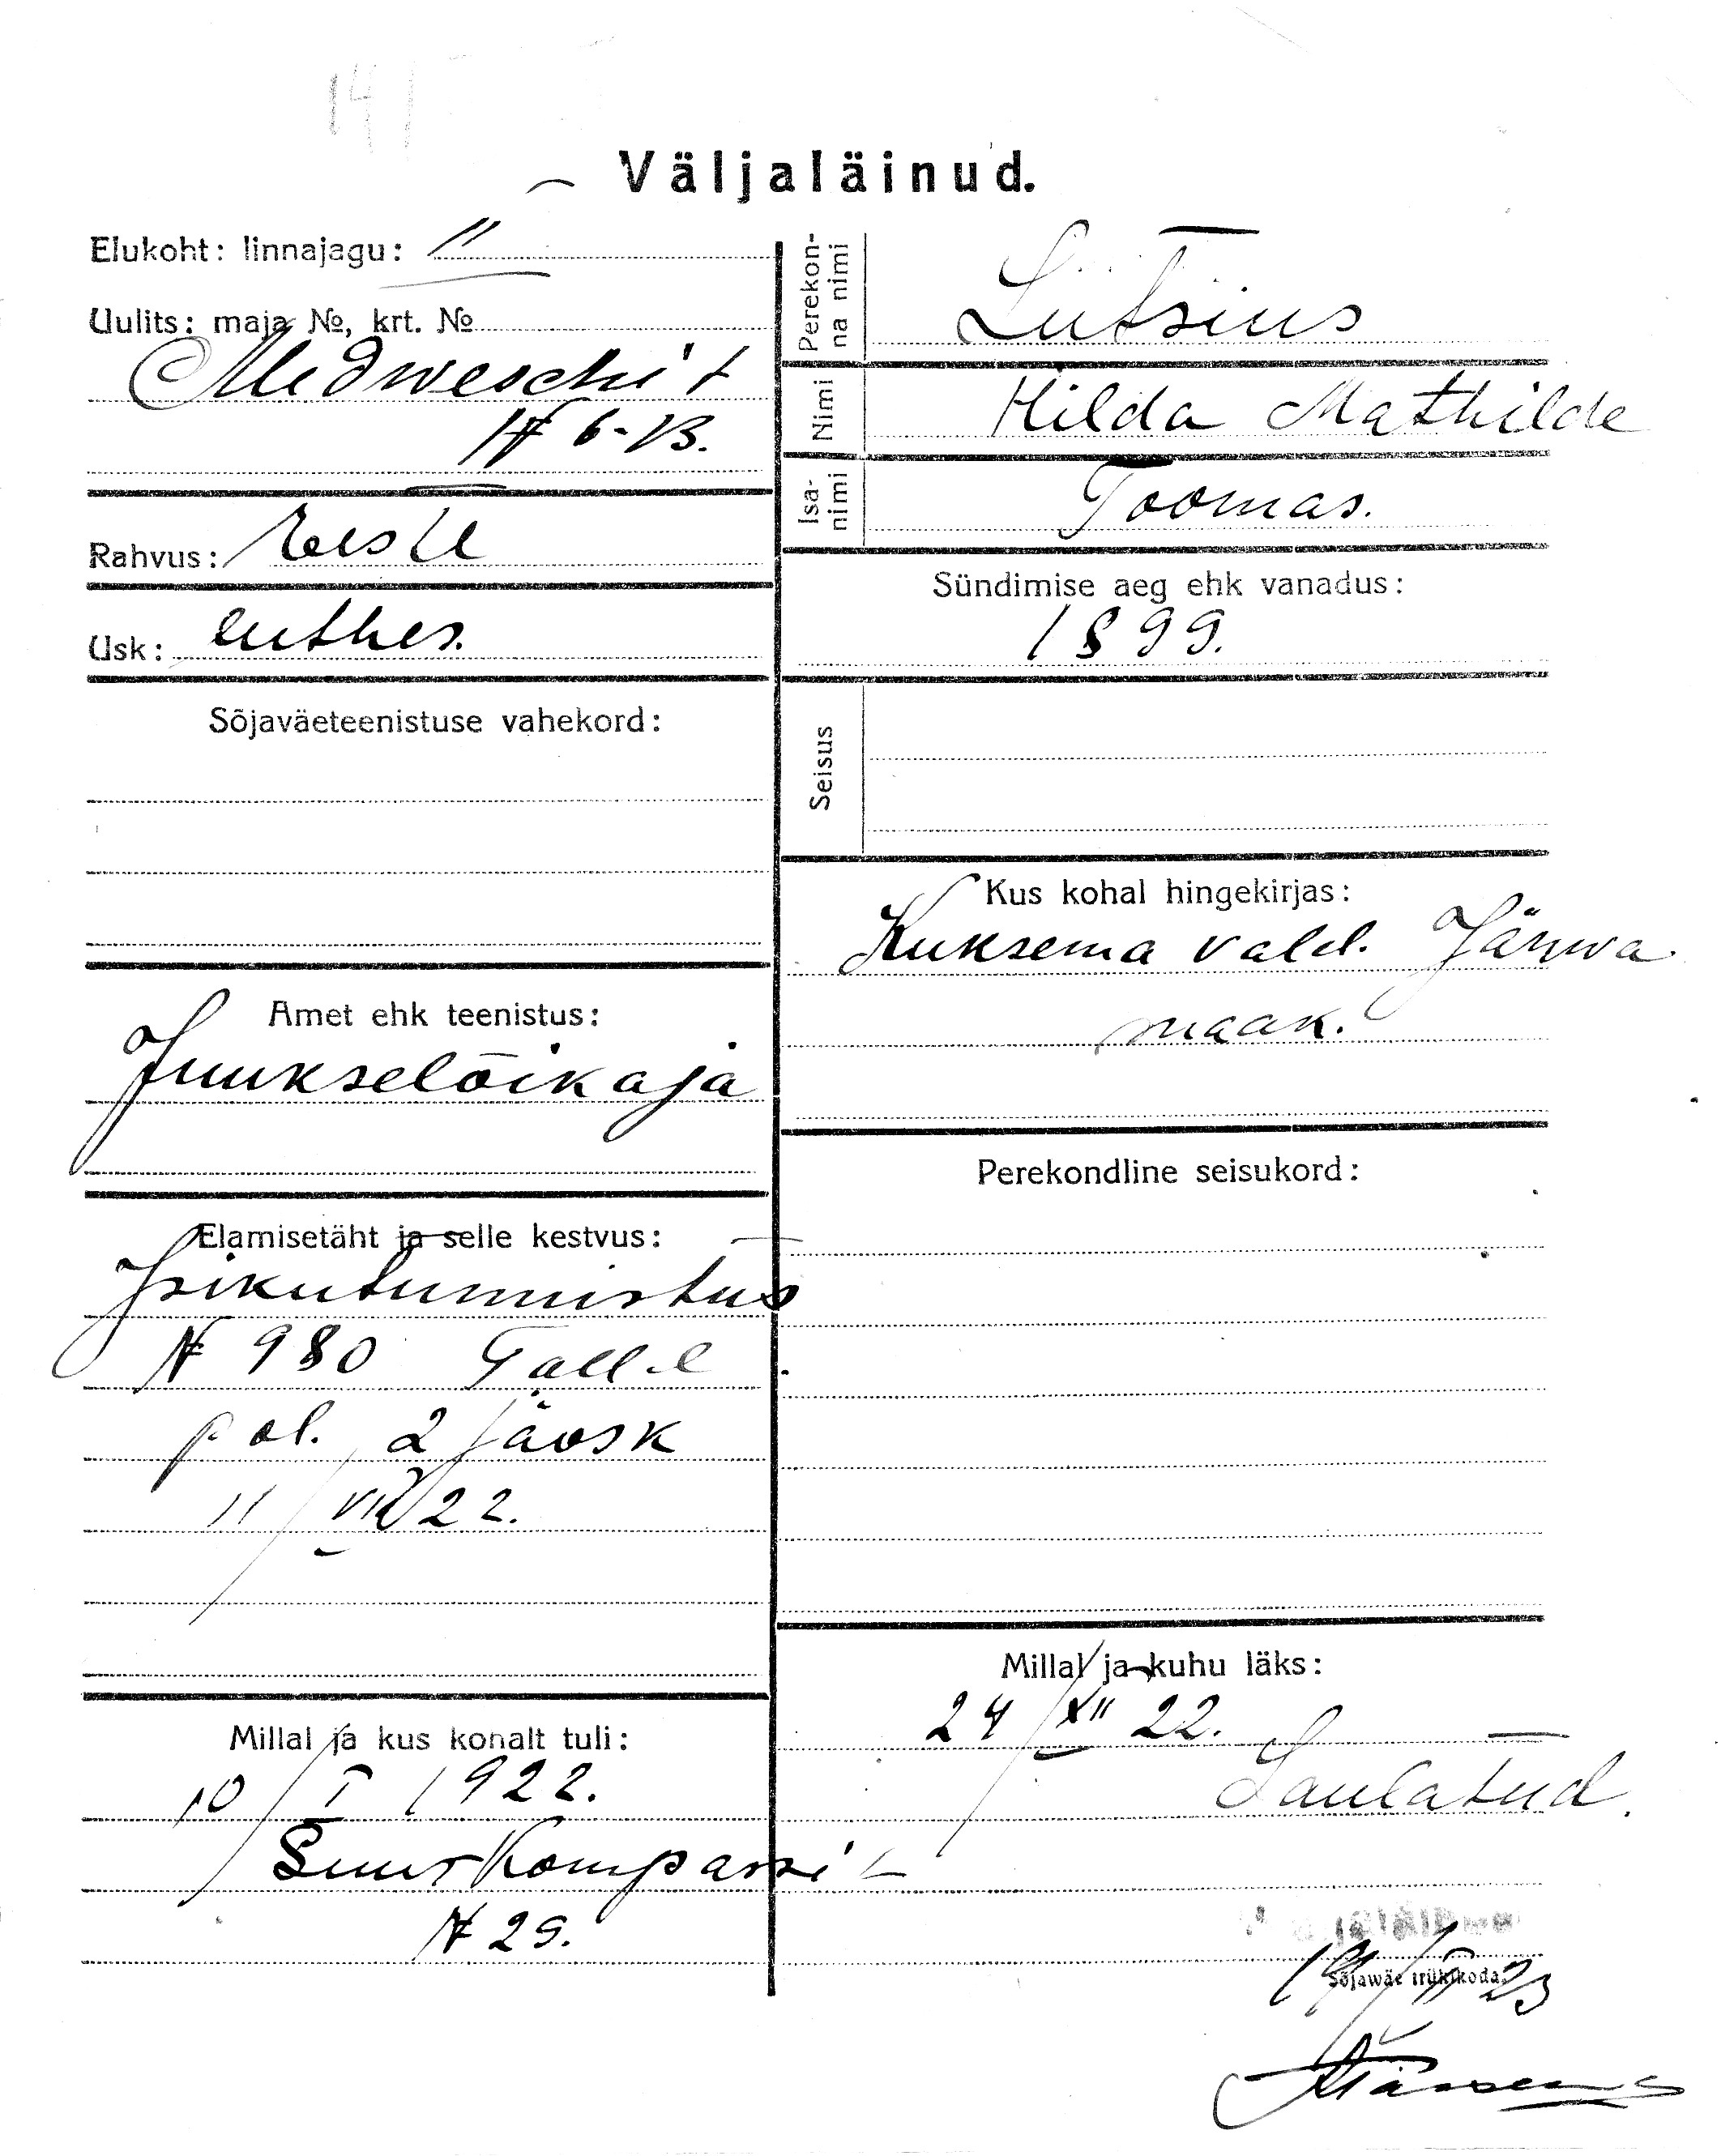 Väljaläinud.
Elukoht: linnajagu: II
Uulits: maja №, krt. №
Medweschi t
№ 6-13.
Rahvus: Eestl
Usk: luther.
Sõjaväeteenistuse vahekord:
Amet ehk teenistus:
Juukselõikaja
Elamisetäht ja selle kestvus:
Isikutunnistus
№ 980 Tall-l
pol. 2 jäosk
11/VII 22.
Millal ja kus kohalt tuli:
10/I 1922.
Suur Kompassi
№ 29.
Perekonna nimi
Lutsius
Nimi
Hilda Mathilde
Isanimi
Toomas.
Sündimise aeg ehk vanadus:
1899.
Seisus
Kus kohal hingekirjas:
Kuksema vald. Järwa
maak.
Perekondline seisukord:
Millal ja kuhu läks:
24/XII 22.
Laulatud.
Sõjawäe trükikoda.